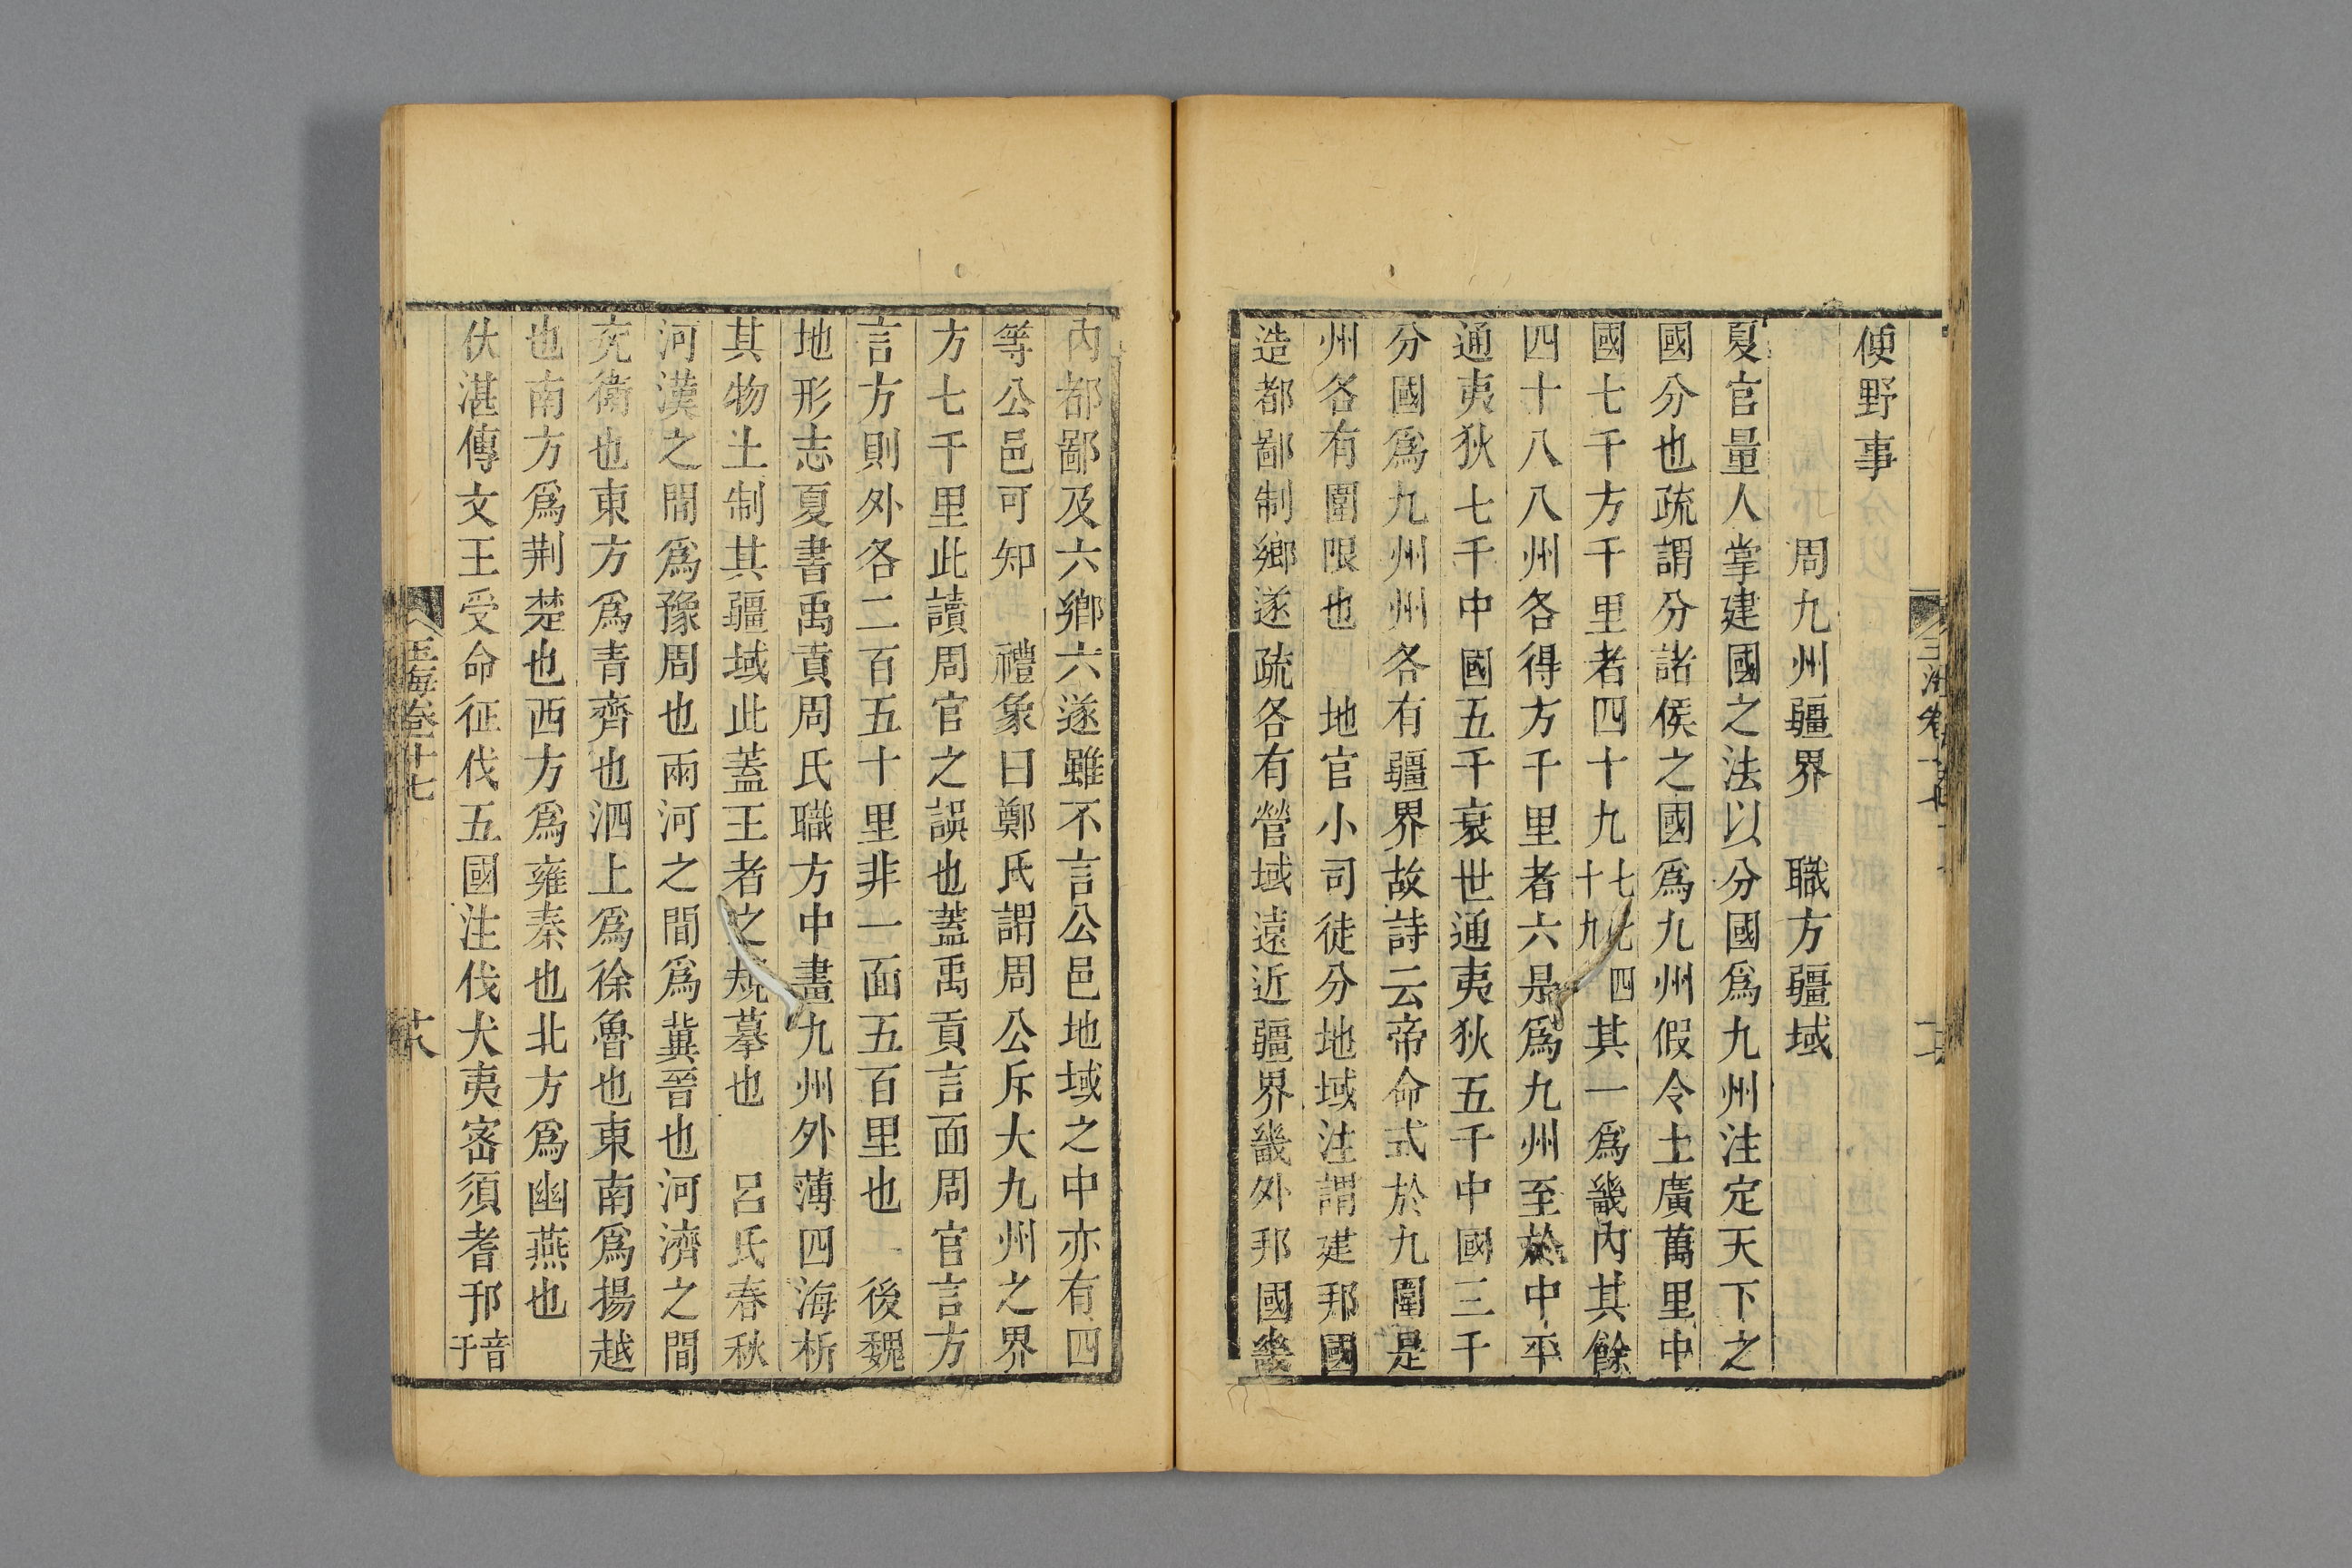 便野事
周九州疆界 職方疆域
夏官量人掌建國之法以分國爲九州注定天下之
國分也疏謂分諸侯之國爲九州假令土廣萬里中
國七千方千里者四十九七七四十九其一爲畿內其餘
四十八八州各得方千里者六是爲九州至於中平
通夷狄七千中國五千衰世通夷狄五千中國三千
分國爲九州州各有疆界故詩云帝命式於九圍是
州各有圍限也 地官小司徒分地域注謂建邦國
造都鄙制鄉遂疏各有營域遠近疆界畿外邦國畿
內都鄙及六鄉六遂雖不言公邑地域之中亦有四
等公邑可知 禮象曰鄭氏謂周公斥大九州之界
方七千里此讀周官之誤也蓋禹貢言面周官言方
言方則外各二百五十里非一面五百里也 後魏
地形志夏書禹貢周氏職方中畫九州外薄四海析
其物土制其疆域此蓋王者之規摹也 呂氏春秋
河漢之間爲豫周也兩河之間爲冀晉也河濟之間
兗衛也東方爲青齊也泗上爲徐魯也東南爲揚越
也南方爲荆楚也西方爲雍秦也北方爲幽燕也
伏湛傳文王受命征伐五國注伐犬夷密須耆邘音于
玉海卷十七